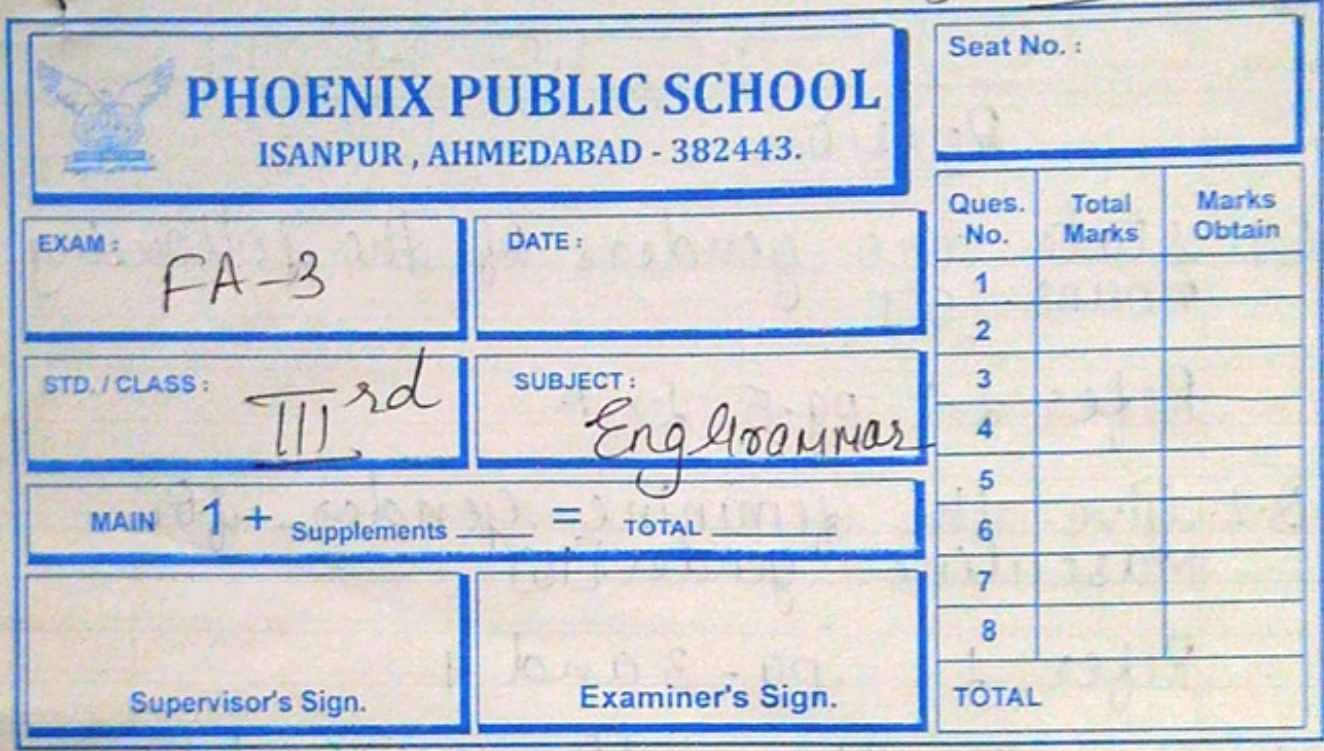 PHOENIX PUBLIC SCHOOL
ISANPUR, AHMEDABAD - 382443.
Seat No. :
EXAM : FA-3
DATE :
STD. / CLASS : IIIrd
SUBJECT : Eng Grammar
MAIN 1 + Supplements ____ = TOTAL ____
Supervisor's Sign.
Examiner's Sign.
Ques. No. Total Marks Marks Obtain
1
2
3
4
5
6
7
8
TOTAL